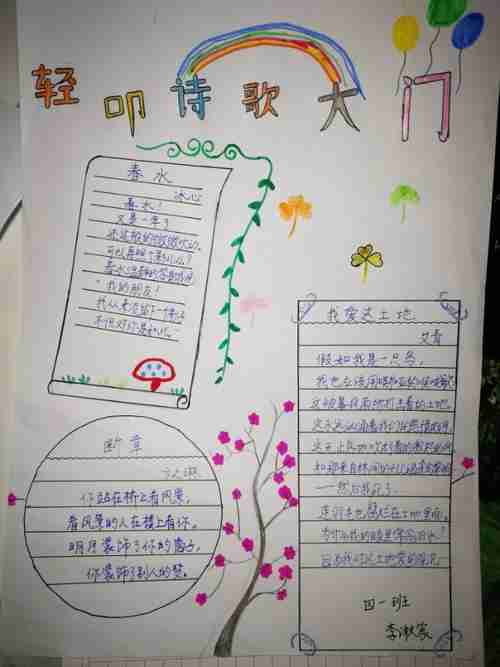 轻叩诗歌大门
春水
冰心
春水!
又是一年了
还这般的微微吹动。
可以再照个影儿么?
春水温静的答谢我说
"我的朋友!
我从来没留下一个影子
不但对你是如此。"
断章
卞之琳
你站在桥上看风景,
看风景的人在楼上看你。
明月装饰了你的窗子,
你装饰了别人的梦。
我爱这土地
艾青
假如我是一只鸟,
我也应该用嘶哑的喉咙歌
这被暴风雨所打击着的土地,
这永远汹涌着我们的悲愤的河
这无止息地吹刮着的激怒的风
和那来自林间的
——然后我死了
连羽毛也腐烂在土地里面。
为什么我的眼里常含泪水?
因为我对这土地爱的深沉
四一班